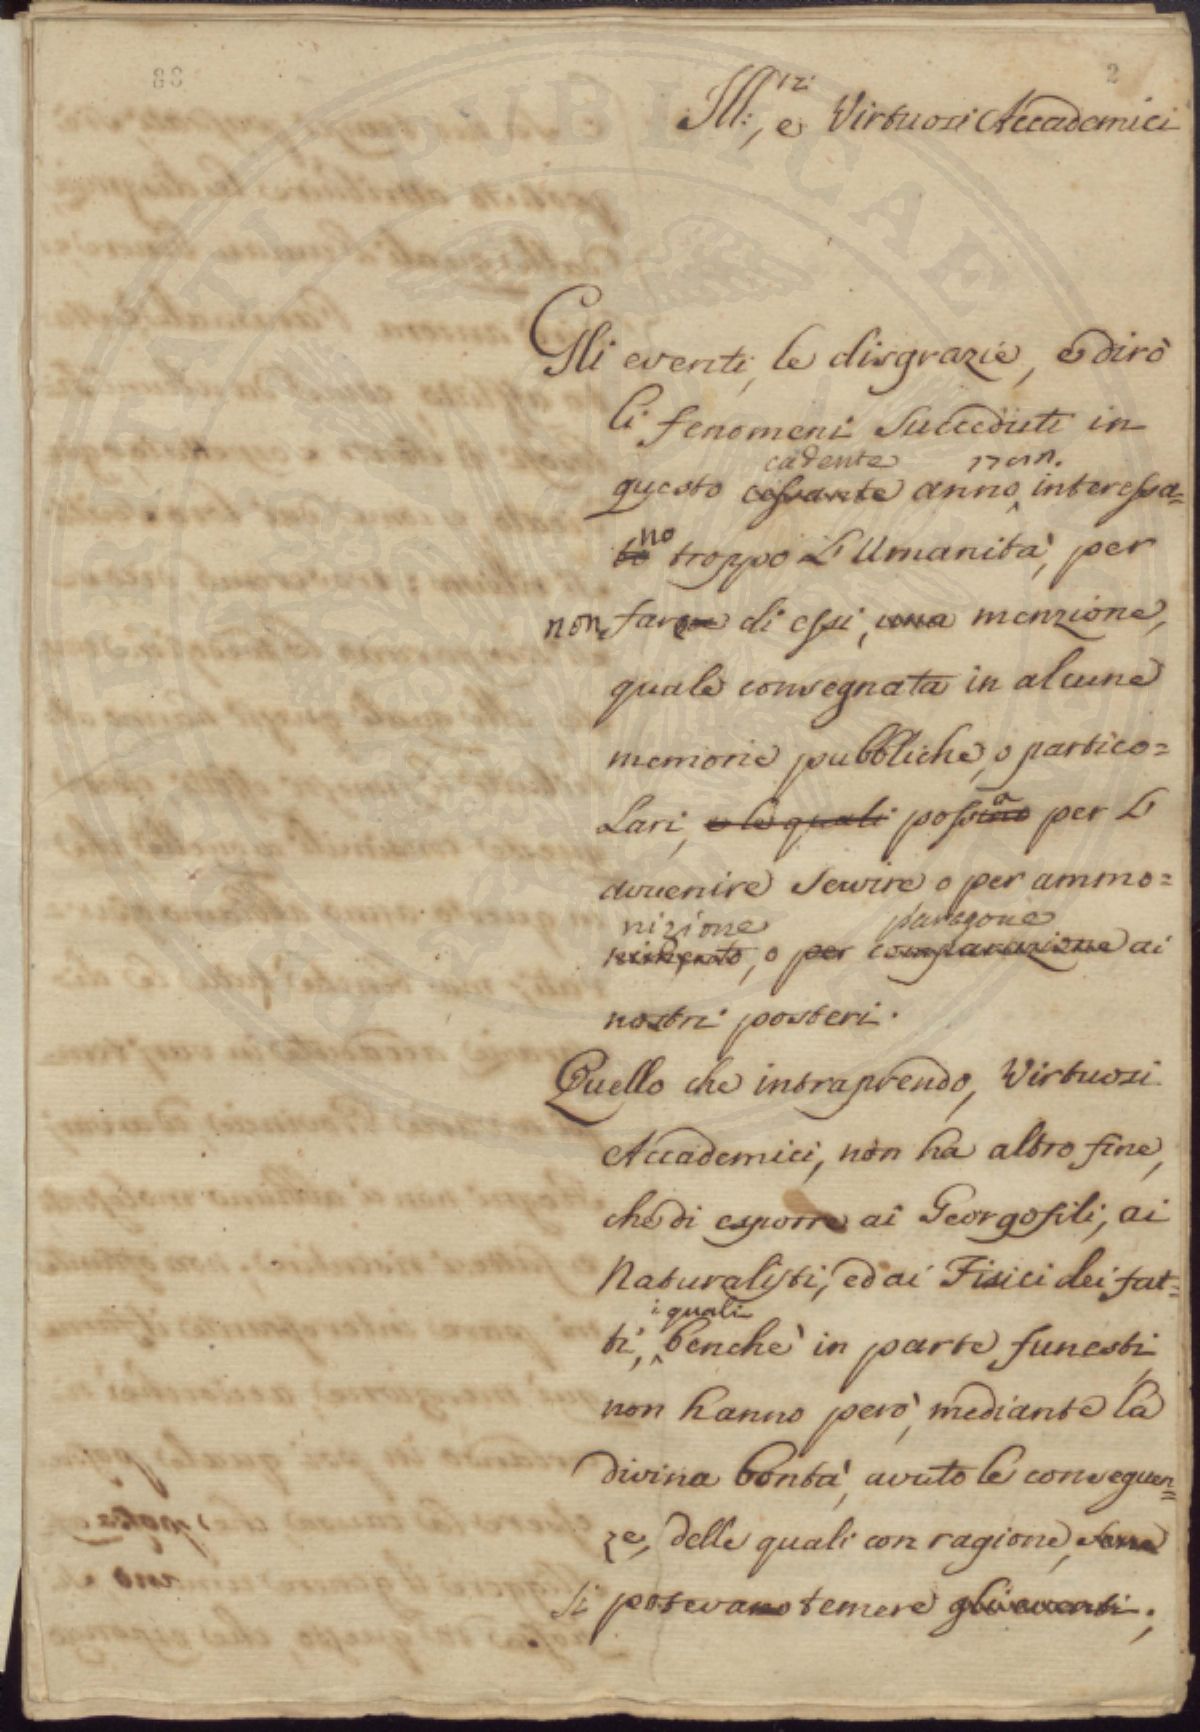 88
2
Ill:ri, e Virtuosi Accademici
Gli eventi, le disgrazie, e dirò
li fenomeni succeduti in
cadente
questo cessante anno, interessa=
no
to troppo L'Umanità, per
non farne di essi, una menzione,
quale consegnata in alcune
memorie pubbliche, o partico=
lari, e le quali possino a per L'
avvenire servire o per ammo=
nizione paragone
, o per comparazione ai
nostri posteri.
Quello che intraprendo, Virtuosi
Accademici, non ha altro fine,
che di esporre ai Georgofili, ai
Naturalisti, ed ai Fisici dei fat=
i quali
ti, benchè in parte funesti,
non hanno però, mediante la
divina bontà, avuto le conseguen=
ze, delle quali con ragione, se ne
si potevano temere gli eventi;